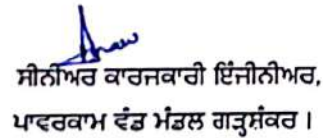 ਸੀਨੀਅਰ ਕਾਰਜਕਾਰੀ ਇੰਜੀਨੀਅਰ,
ਪਾਵਰਕਾਮ ਵੰਡ ਮੰਡਲ ਗੜ੍ਹਸ਼ੰਕਰ ।